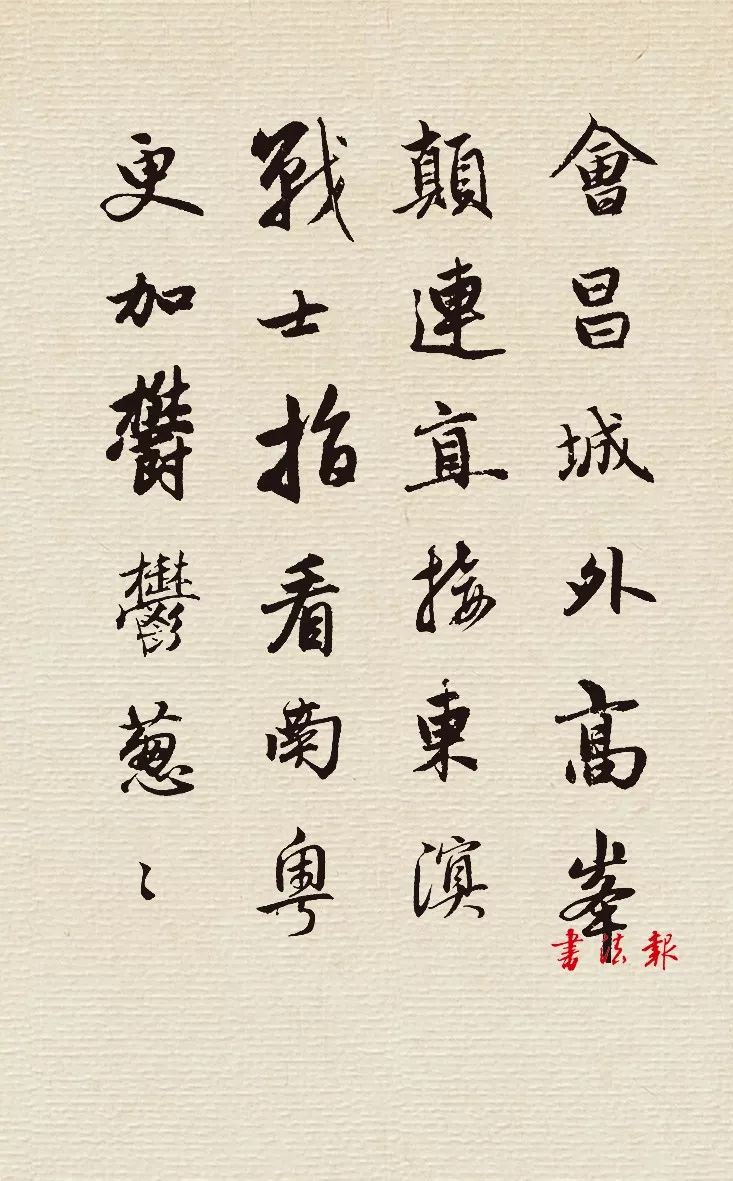 會昌城外高峯
顛連直接東溟
戰士指看南粵
更加鬱鬱葱〻
书法報